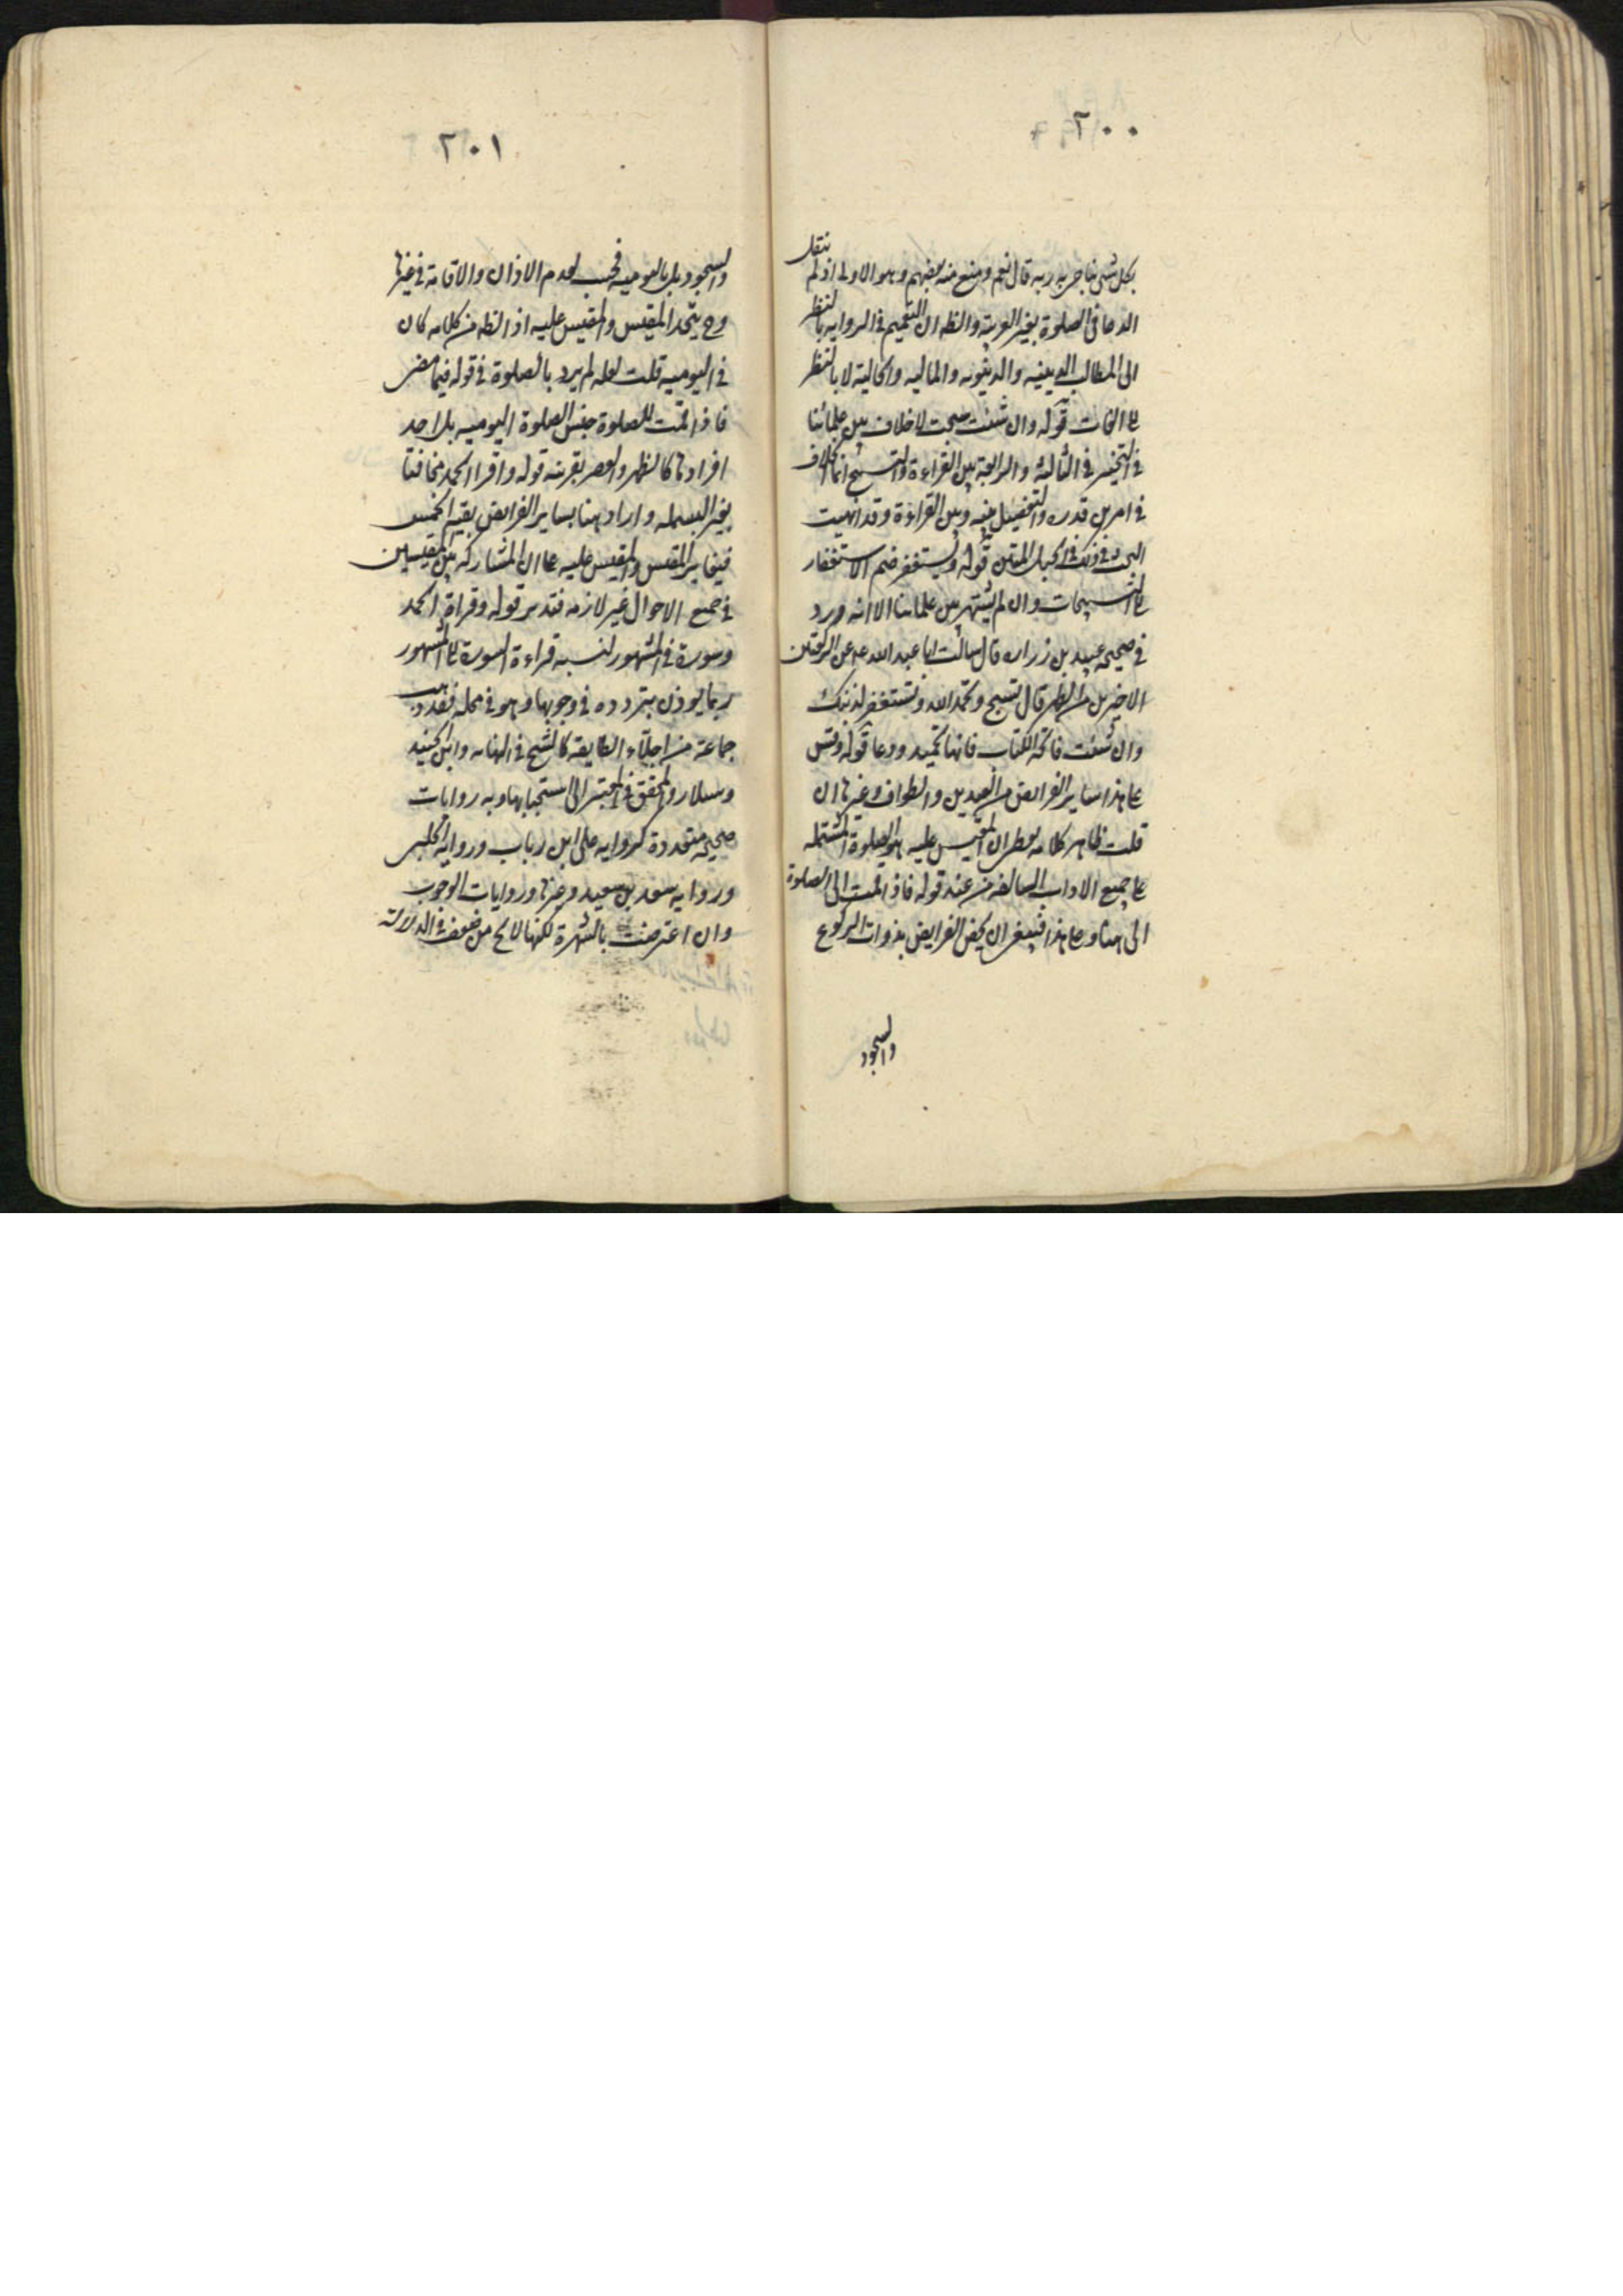 ٢٠٠
بكل شئ يناجي به ربه قال نعم ومنع منه بعضهم وهو الاولى اذ لم ينقل
الدعا في الصلوة بغير العربية والظه ان التعميم في الرواية بالنظر
الى المطالب الدينيه والدنيويه والماليه والحالية لا بالنظر
الى اللغات قوله وان شئت سبحت لا خلاف بين علمائنا
في التخيير في الثالثة والرابعة بين القراءة والتسبيح انما الخلاف
في امرين قدره والتفضيل بينه وبين القراءة وقد انهيت
البحث في ذلك في الحبل المتين قوله ويستغفر ضم الاستغفار
الى التسبيحات وان لم يشتهر بين علمائنا الا انه ورد
في صحيحه عبيد بن زراره قال سالت ابا عبد الله عه عن الركعتين
الاخيرين من الظهر قال تسبح وتحمد الله وتستغفر لذنبك
وان شئت فاتحة الكتاب فانها تحميد ودعا قوله وقس
على هذا ساير الفرايض من العيدين والطواف وغيرها ان
قلت ظاهر كلامه يعطى ان المقيس عليه هو الصلوة المشتمله
على جميع الاداب السالفه من عند قوله فاذا قمت الى الصلوة
الى هنا وعلى هذا فينبغى ان يخص الفرايض بذوات الركوع
والسجود
٢٠١
والسجود بل باليوميه فحسب لعدم الاذان والاقامة في غيرها
وح يتحد المقيس والمقيس عليه اذ الظه من كلامه كان
في اليوميه قلت لعله لم يرد بالصلوة في قوله فيما مضى
فاذا قمت للصلوة جنس الصلوة اليوميه بل احد
افرادها كالظهر والعصر بقرينة قوله واقرا الحمد مخافتا
بغير البسمله واراد هنا بساير الفرايض بقية الخمس
فيتغاير المقيس والمقيس عليه على ان المشاركه بين المقيسين
في جميع الاحوال غير لازمه فتدبر قوله وقراة الحمد
وسورة في المشهور لنسبه قراءة السورة الى المشهور
ربما يوذن بتردده في وجوبها وهو في محله فقد ذهب
جماعة من اجلاء الطايفه كالشيخ في النهايه وابن الجنيد
وسلار والمحقق في المعتبر الى استحبابها وبه روايات
صحيحه متعددة كروايه على ابن رياب ورواية الحلبى
وروايه سعد بن سعيد وغيرها وروايات الوجوب
وان اعتضدت بالشهرة لكنها لا تخ من ضعف في الدلالة